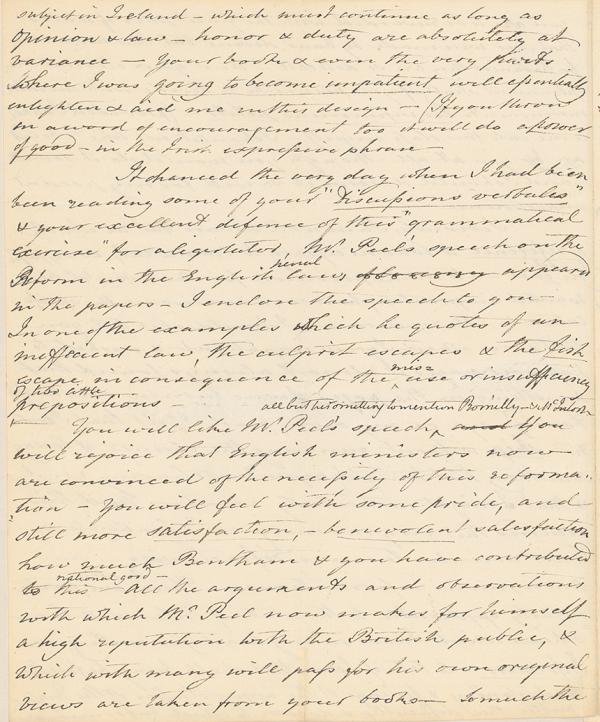 subject in Ireland – which must continue as long as
opinion & law – honor & duty are absolutely at
variance – Your books & even the very parts
where I was going to become impatient will essentially
enlighten & aid me in this design – (If you throw
in a word of encouragement too it will do a power
of good – in the Irish expressive phrase –
It chanced the very day when I had been
been reading some of your "Discussions verbales"
& your excellent defence of this "grammatical
exercise" for a legislator, Mr. Peel's speech on the
Reform in the English penal laws appeared
in the papers – I enclose the speech to you –
In one of the examples which he quotes of an
inefficient law, the culprit escapes & the fish
escape in consequence of the mis-use or insufficiency
of two little
prepositions –
all but his omitting to mention Romilly – & McIntosh –
You will like Mr. Peel's speech, and You
will rejoice that English ministers now
are convinced of the necessity of this reforma-
tion – You will feel with some pride, and
still more satisfaction, – benevolent satisfaction
how much Bentham & you have contributed
to this national good – All the arguments and observations
with which Mr. Peel now makes for himself
a high reputation with the British public, &
which with many will pass for his own original
views are taken from your books – So much the